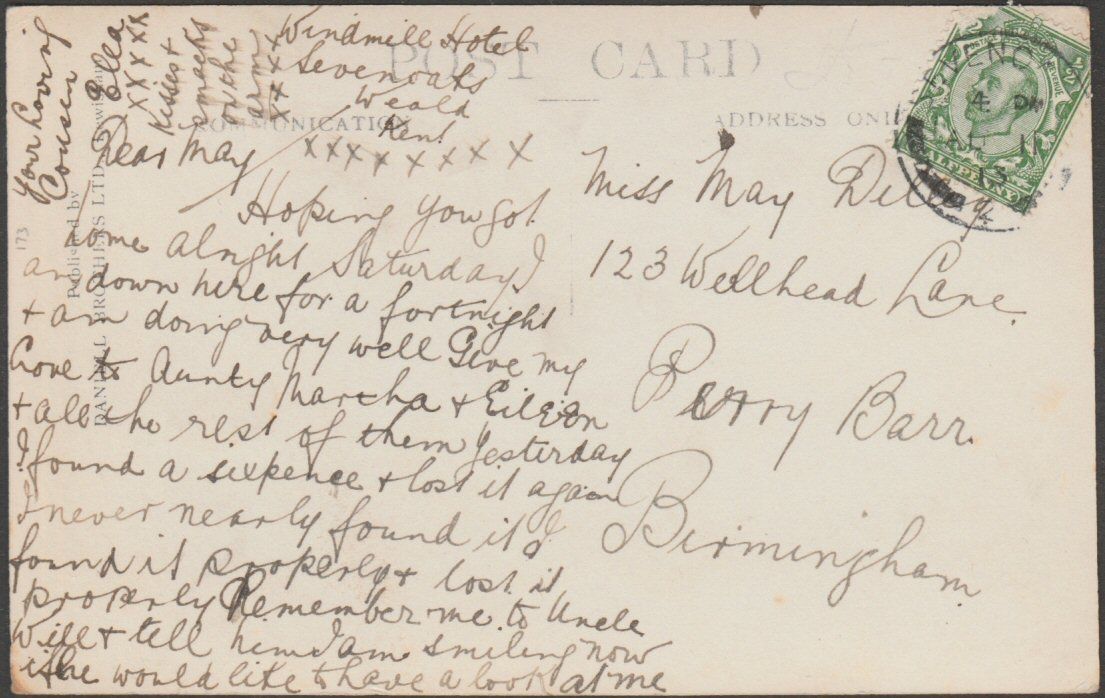 POST CARD
COMMUNICATION
ADDRESS ONLY
Published by
DANIELL BROTHERS LTD. Lewisham
173
Windmill Hotel
Sevenoaks
Weald
Kent
Dear May
x x x x x x x x
Hoping you got
home alright Saturday I
am down here for a fortnight
+ am doing very well Give my
love to Aunty Martha + Eileen
+ all the rest of them Yesterday
I found a sixpence + lost it again
I never nearly found it I
found it properly + lost it
properly Remember me to Uncle
Will + tell him I am smiling now
if he would like to have a look at me
Your loving
Cousin
Ella
x x x x x
Kisses +
smacks
on the
arm
x x x x x
Miss May
123 Wellhead Lane.
Perry Barr.
Birmingham
POSTAGE
REVENUE
HALFPENNY
4
13